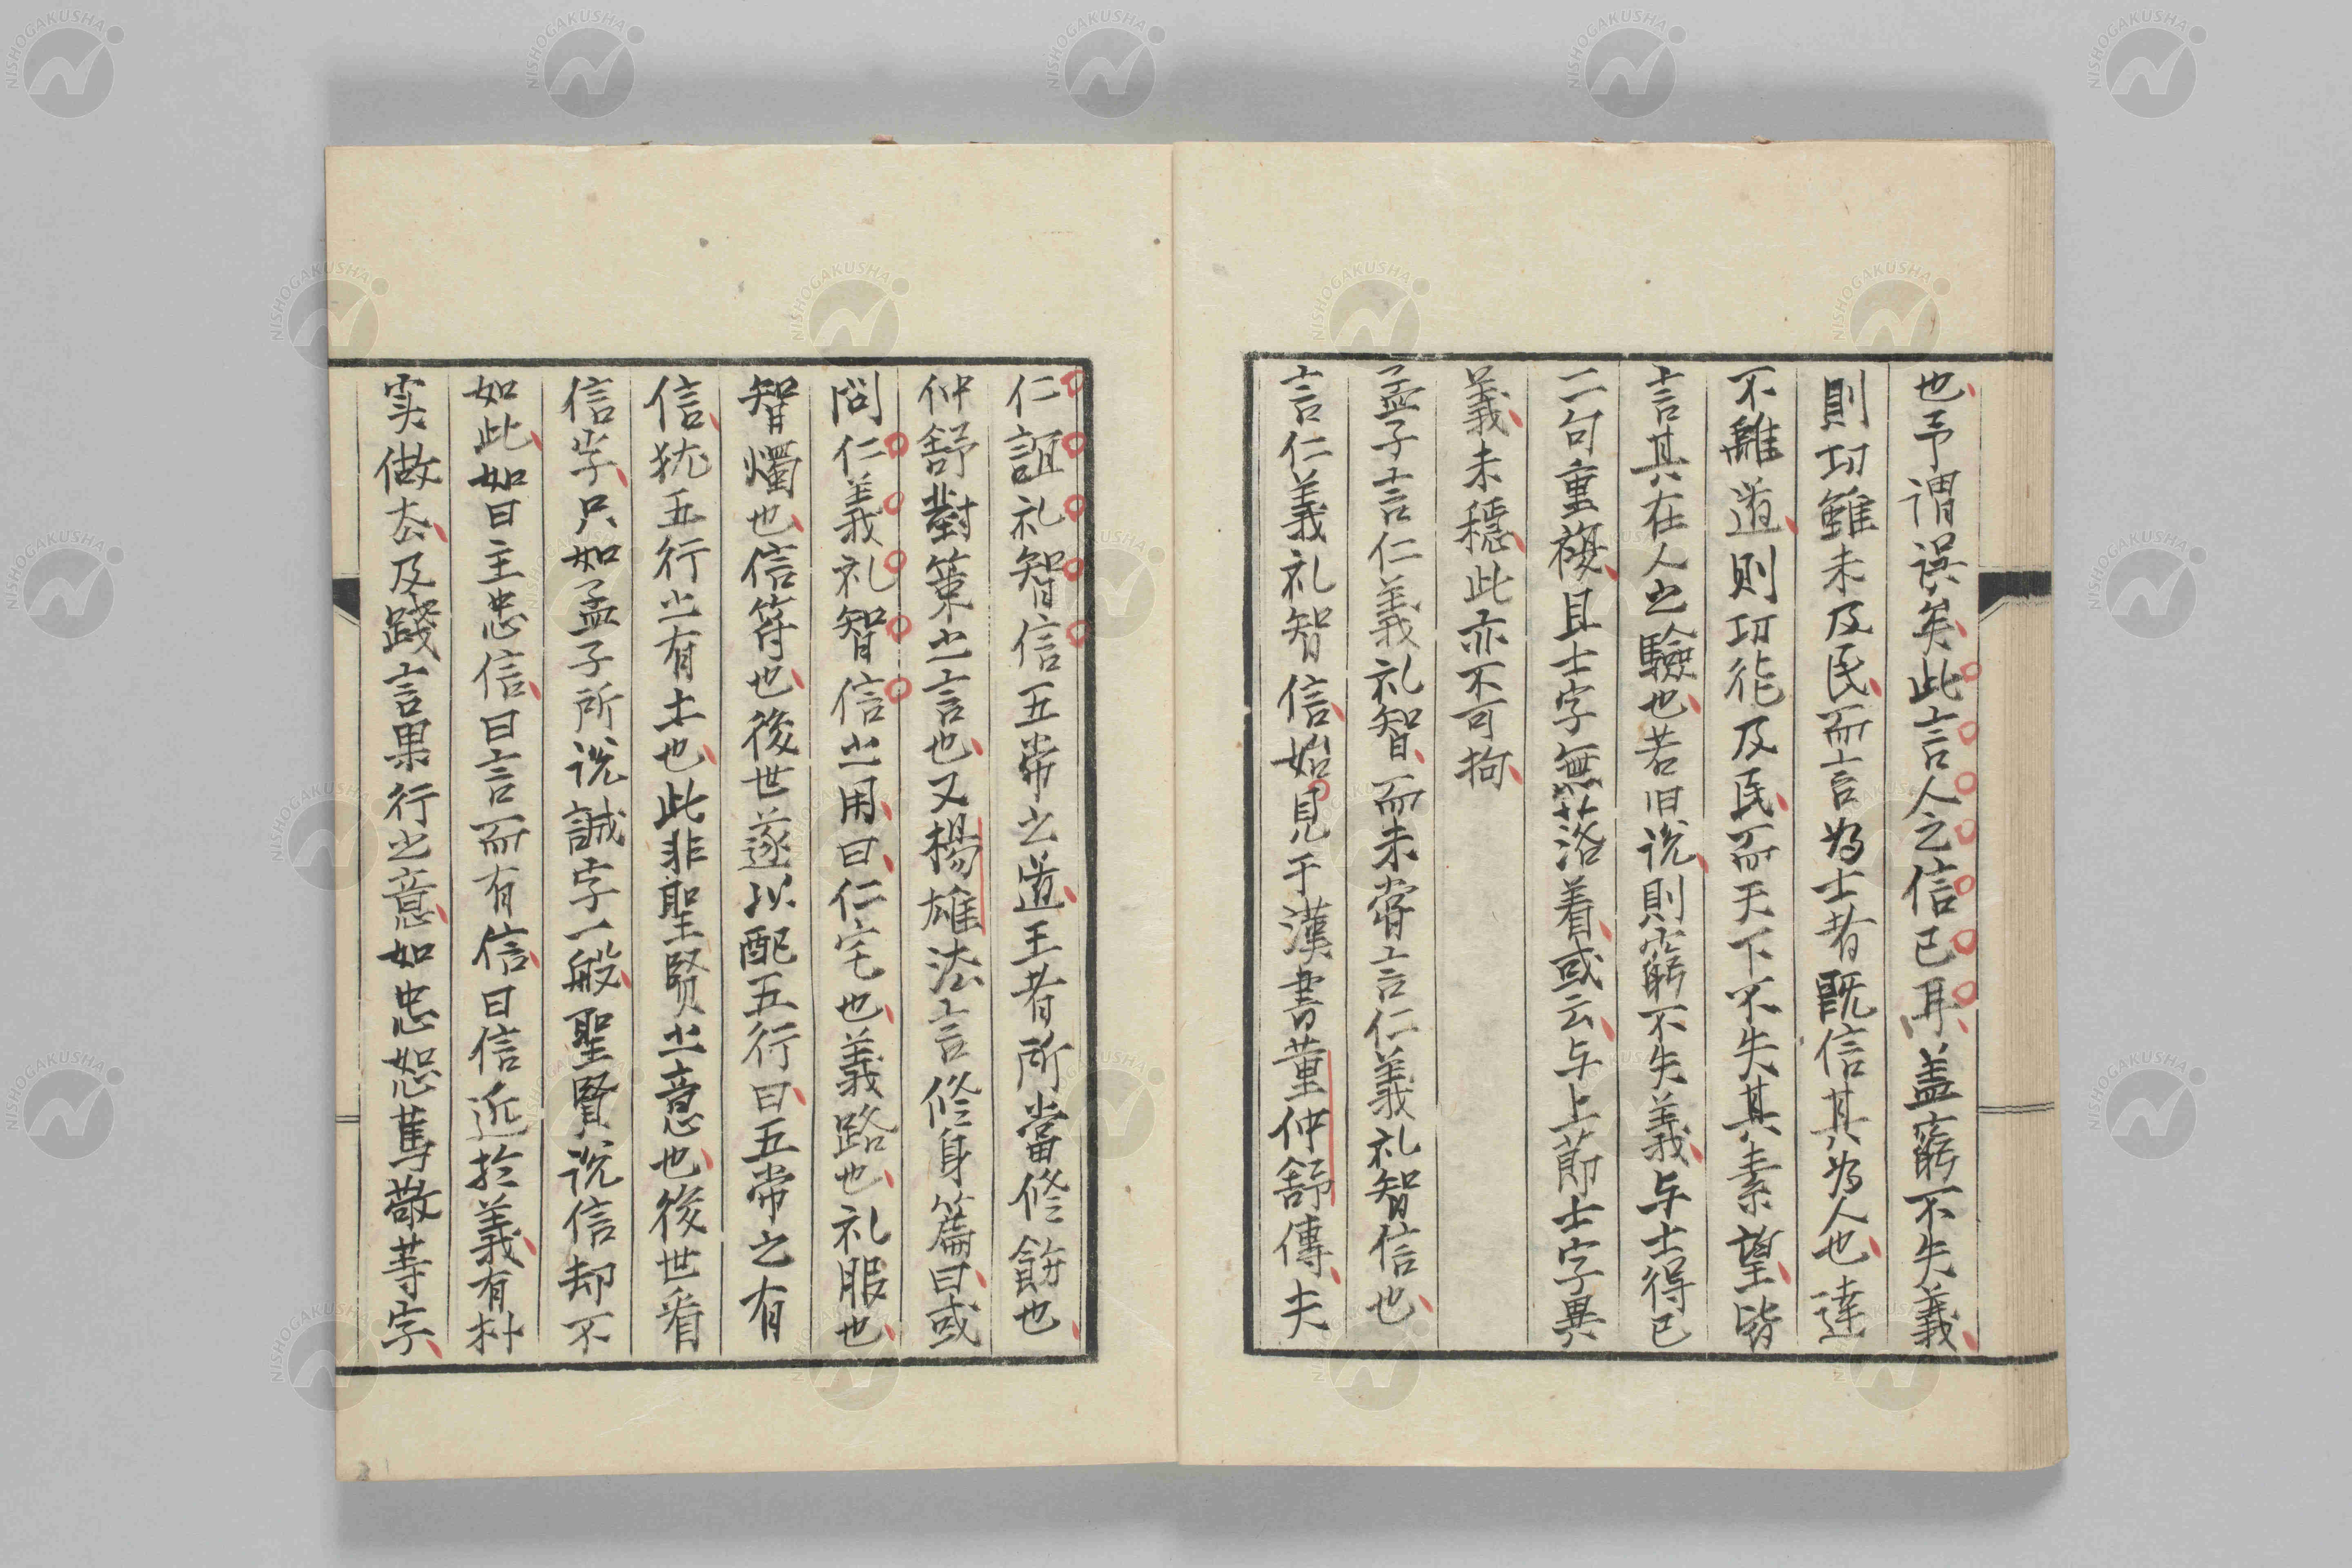 也予謂誤矣此言人之信已耳蓋窮不失義
則功雖未及民而言為士者既信其為人也達
不離道則功能及民而天下不失其素望皆
言其在人之驗也若旧説則窮不失義与士得已
二句重複且士字無落着或云与上莭士字異
義未穩此亦不可拘
孟子言仁義礼智而未嘗言仁義礼智信也
言仁義礼智信始見于漢書董仲舒傳夫
仁誼礼智信五常之道王者所當修飭也
仲舒對策之言也又楊雄法言修身篇曰或
問仁義礼智信之用曰仁宅也義路也礼服也
智燭也信符也後世遂以配五行曰五常之有
信犹五行之有土也此非聖賢之意也後世看
信字只如孟子所説誠字一般聖賢説信却不
如此如曰主忠信曰言而有信曰信近於義有朴
实做去及踐言果行之意如忠恕篤敬等字
NISHOGAKUSHA